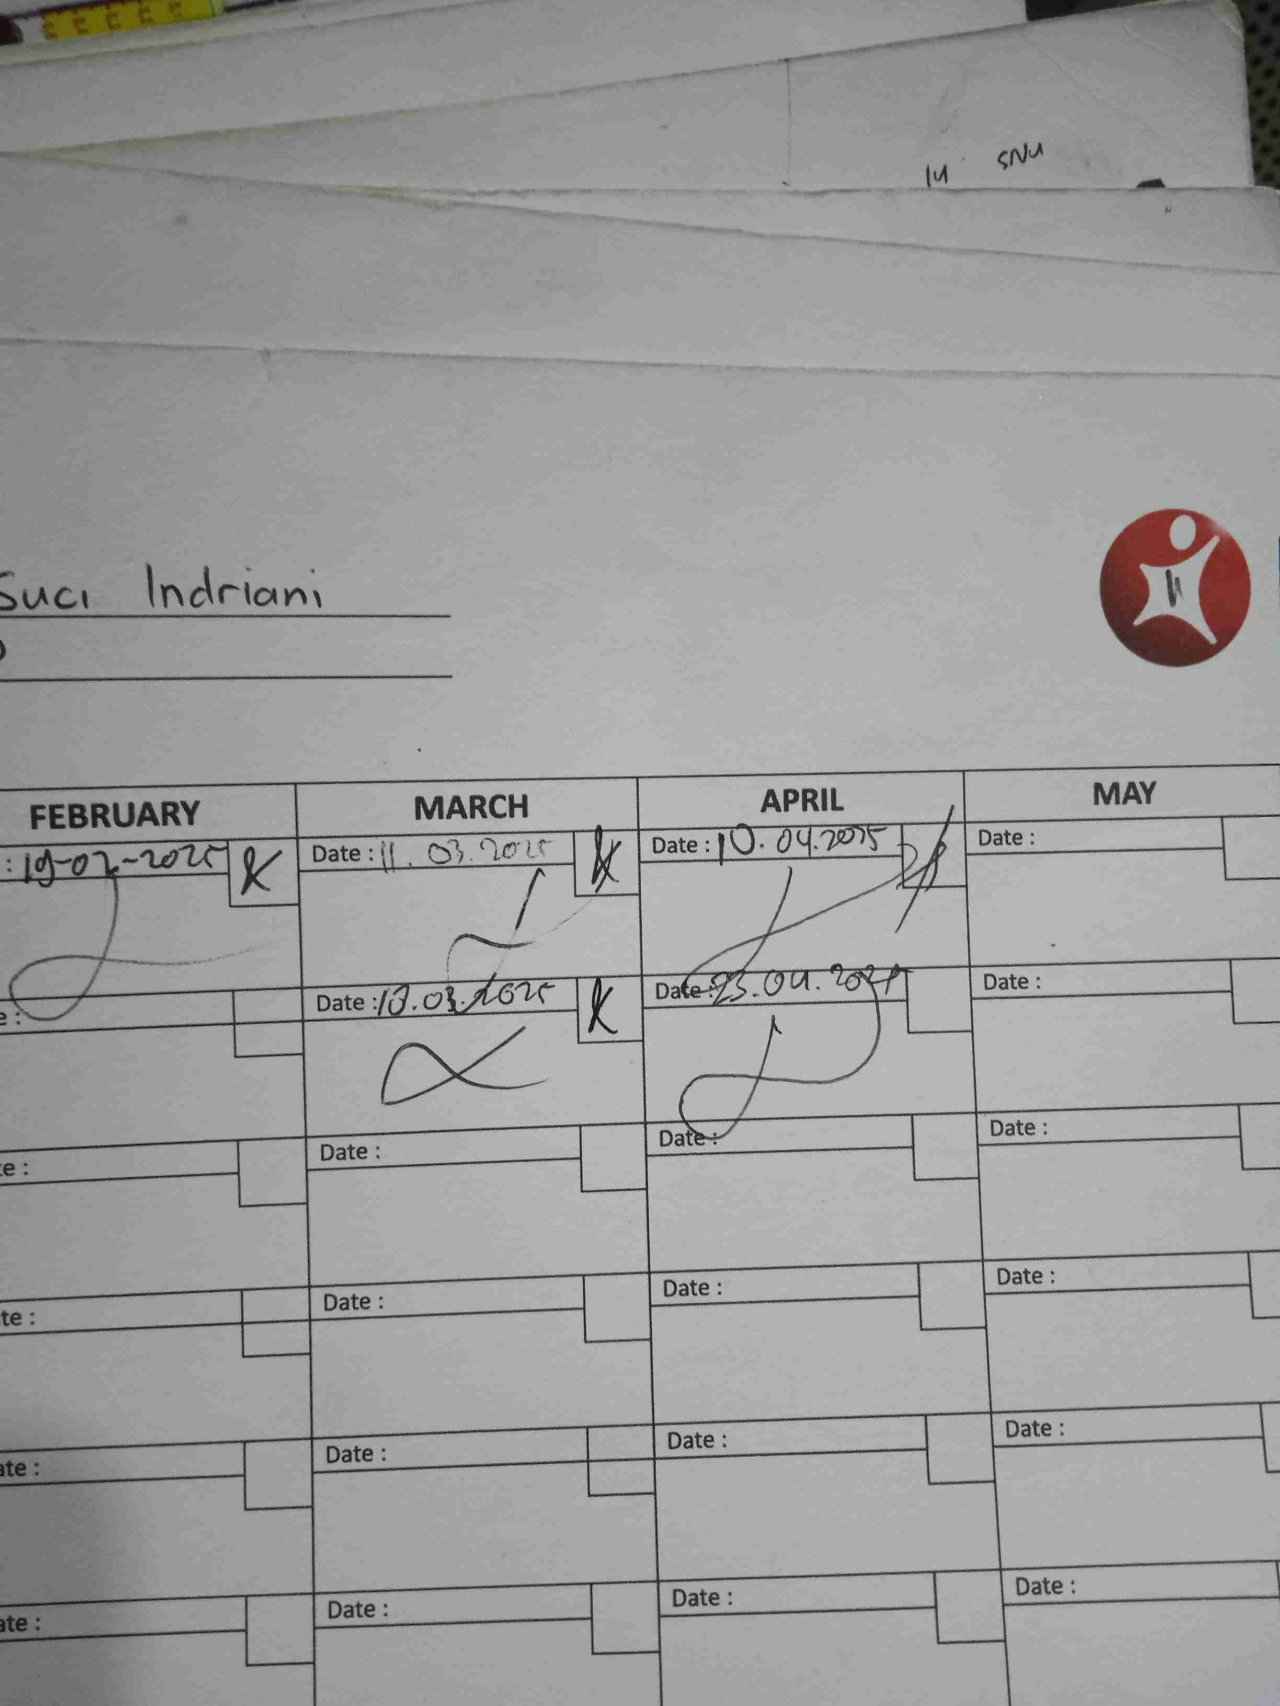 14 SNU
Suci Indriani
FEBRUARY MARCH APRIL MAY
: 19-02-2025 K Date : 11.03.2025 K Date : 10.04.2025 Date :
e : Date : 10.03.2025 K Date : 23.04.2025 Date :
te : Date : Date : Date :
te : Date : Date : Date :
ate : Date : Date : Date :
ate : Date : Date : Date :